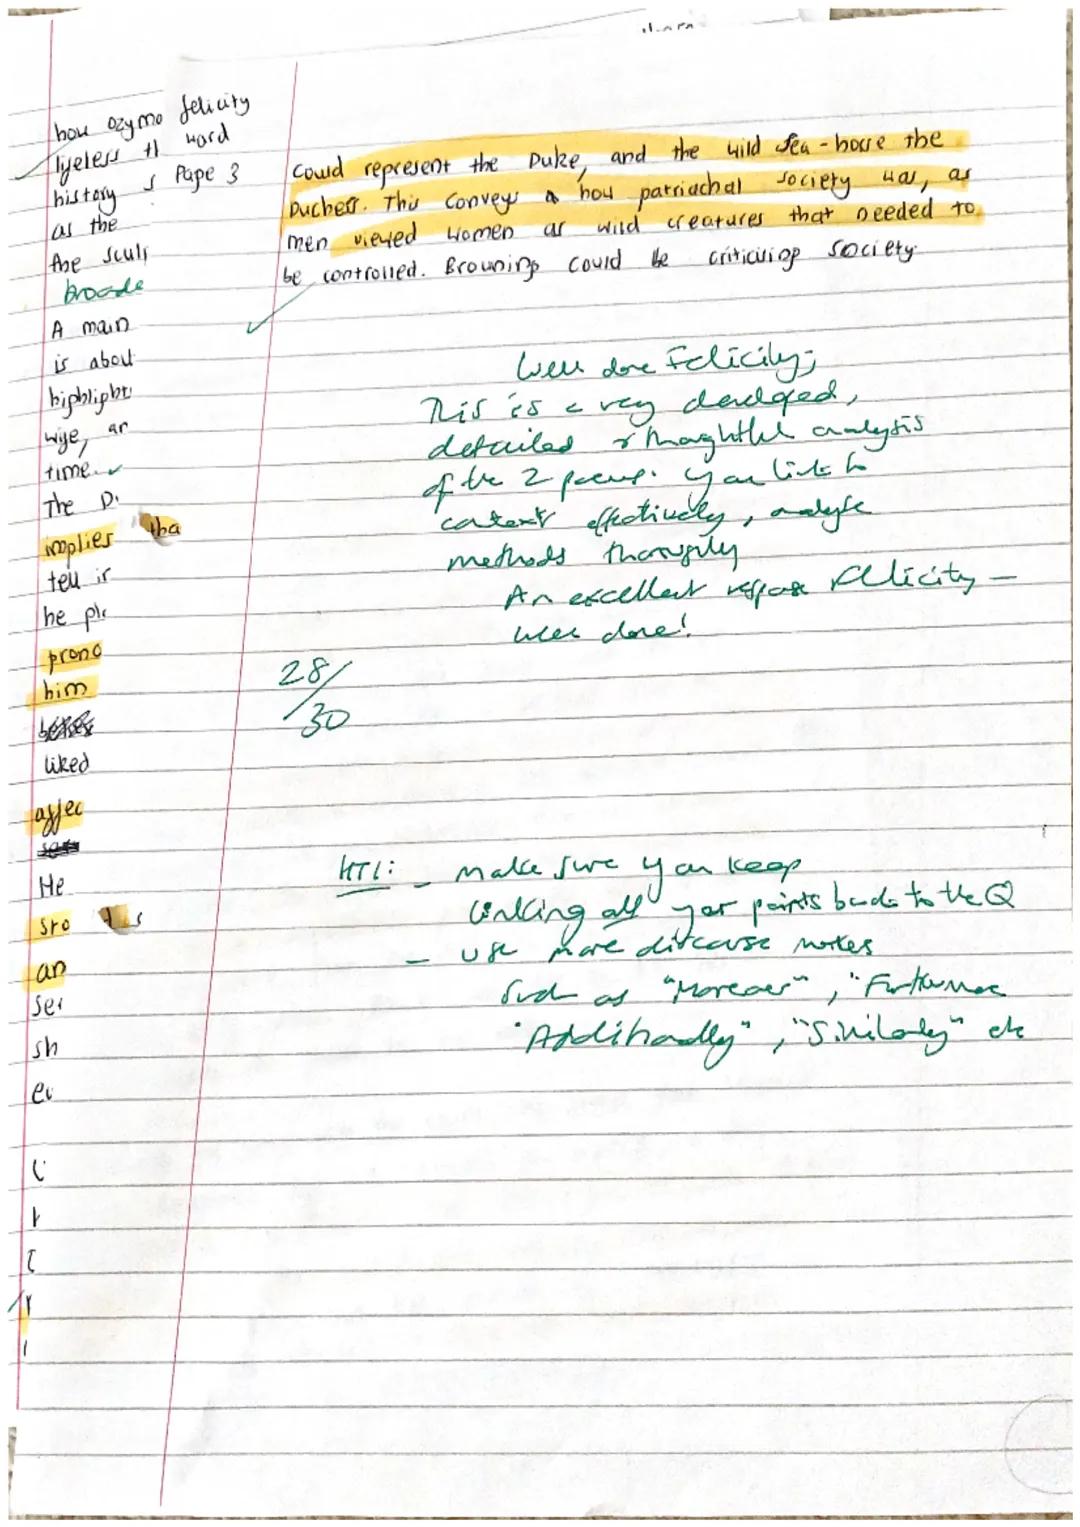 felicity
word
Page 3
how ozymo
lifeless th
history s
as the
the scul
Browde
A main
is about
highlight
wife, an
time.
The D
implies tha
tell ir
he pla
prono
him
liked
affec
He
sro
an
ser
sh
ev
could represent the Duke, and the wild sea-horse the
Duchess. This conveys how patriachal society was, as
men viewed women as wild creatures that needed to
be controlled. Browning could be criticising society.
Well done Felicity;
This is a very developed,
detailed & thoughtful analysis
of the 2 poems. You link to
context effectively, analyse
methods thoroughly
An excellent response Felicity –
well done!
28/30
HTI: – Make sure you keep
linking all your points back to the Q
– Use more discourse markers
such as "Moreover", "Furthermore
"Additionally", "Similarly" etc